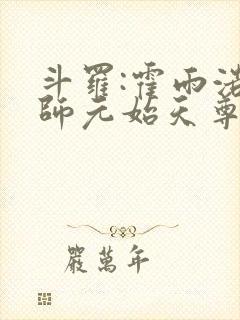 斗羅:霍雨浩
師元始天尊
嚴萬年